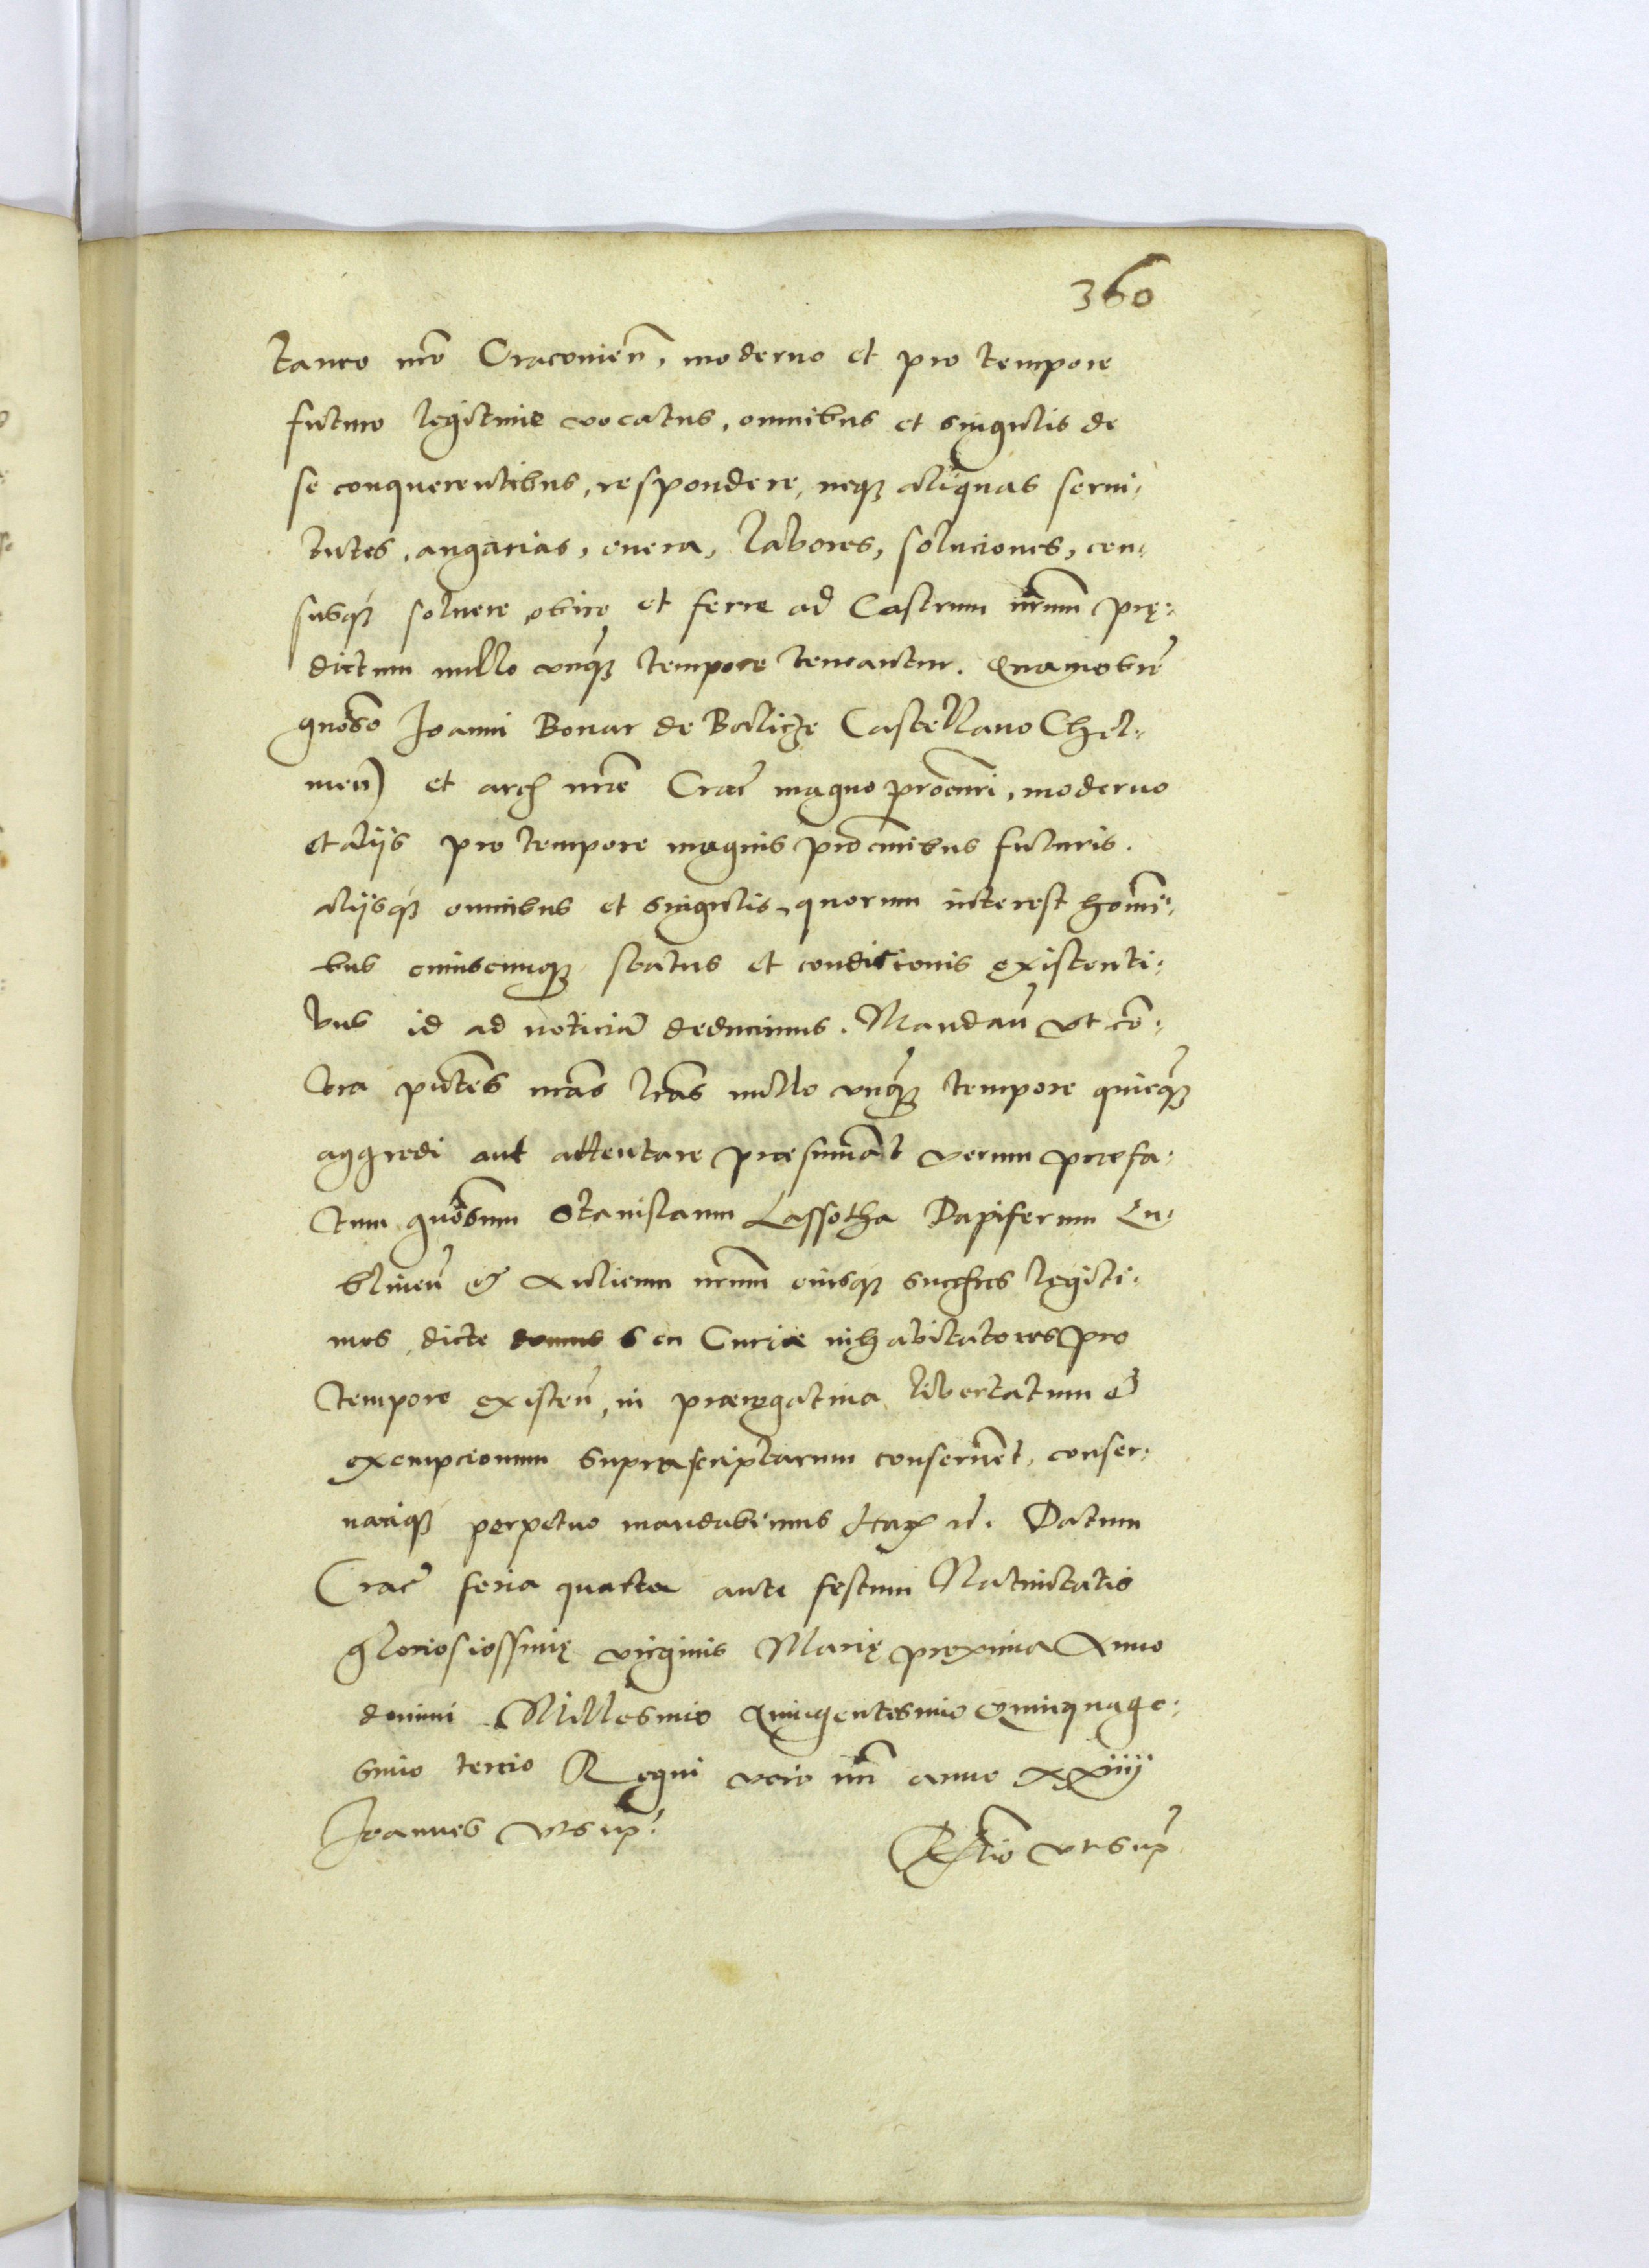 360
taneo nro Cracouien, moderno et pro tempore
futuro legitime vocatus, omnibus et singulis de
se conquerentibus, respondere, neq aliquas serui-
tutes, angarias, onera, labores, soluciones, cen-
susq soluere obire et ferre ad Castrum nrum prę-
dictum nullo vnq tempore teneantur. Quamobre
gnoso Joanni Bonar de Balicze Castellano Chel-
men et arcis nrae Crac magno procuri, moderno
et alijs pro tempore magnis procuribus futuris.
alijsq omnibus et singulis, quorum interest homi-
bus cuiuscunq status et condicionis existenti-
bus id ad noticia deducimus. Mandan vt con-
tra pntes nras lras nullo vnq tempore quicq
aggredi aut attentare praesumat verum praefa-
tum gnosum Stanislaum Lassotha Dapiferum Lu-
blinen & Aulicum nrum eiusq succres legiti-
mos, dicte domus seu Curiae inhabitatores pro
tempore existen, in praerogatiua libertatum &
exempcionum suprascriptarum conseruent, conser-
uariq perpetuo mandabimus Harum Datum
Crac feria quarta ante festum Natiuitatis
gloriosiossimę virginis Marię proxima Anno
domini Millesimo Quingentesimo Quinquage-
simo tercio Regni vero nri anno xxiiij
Joannes vt sup.
Rlatio vt sup